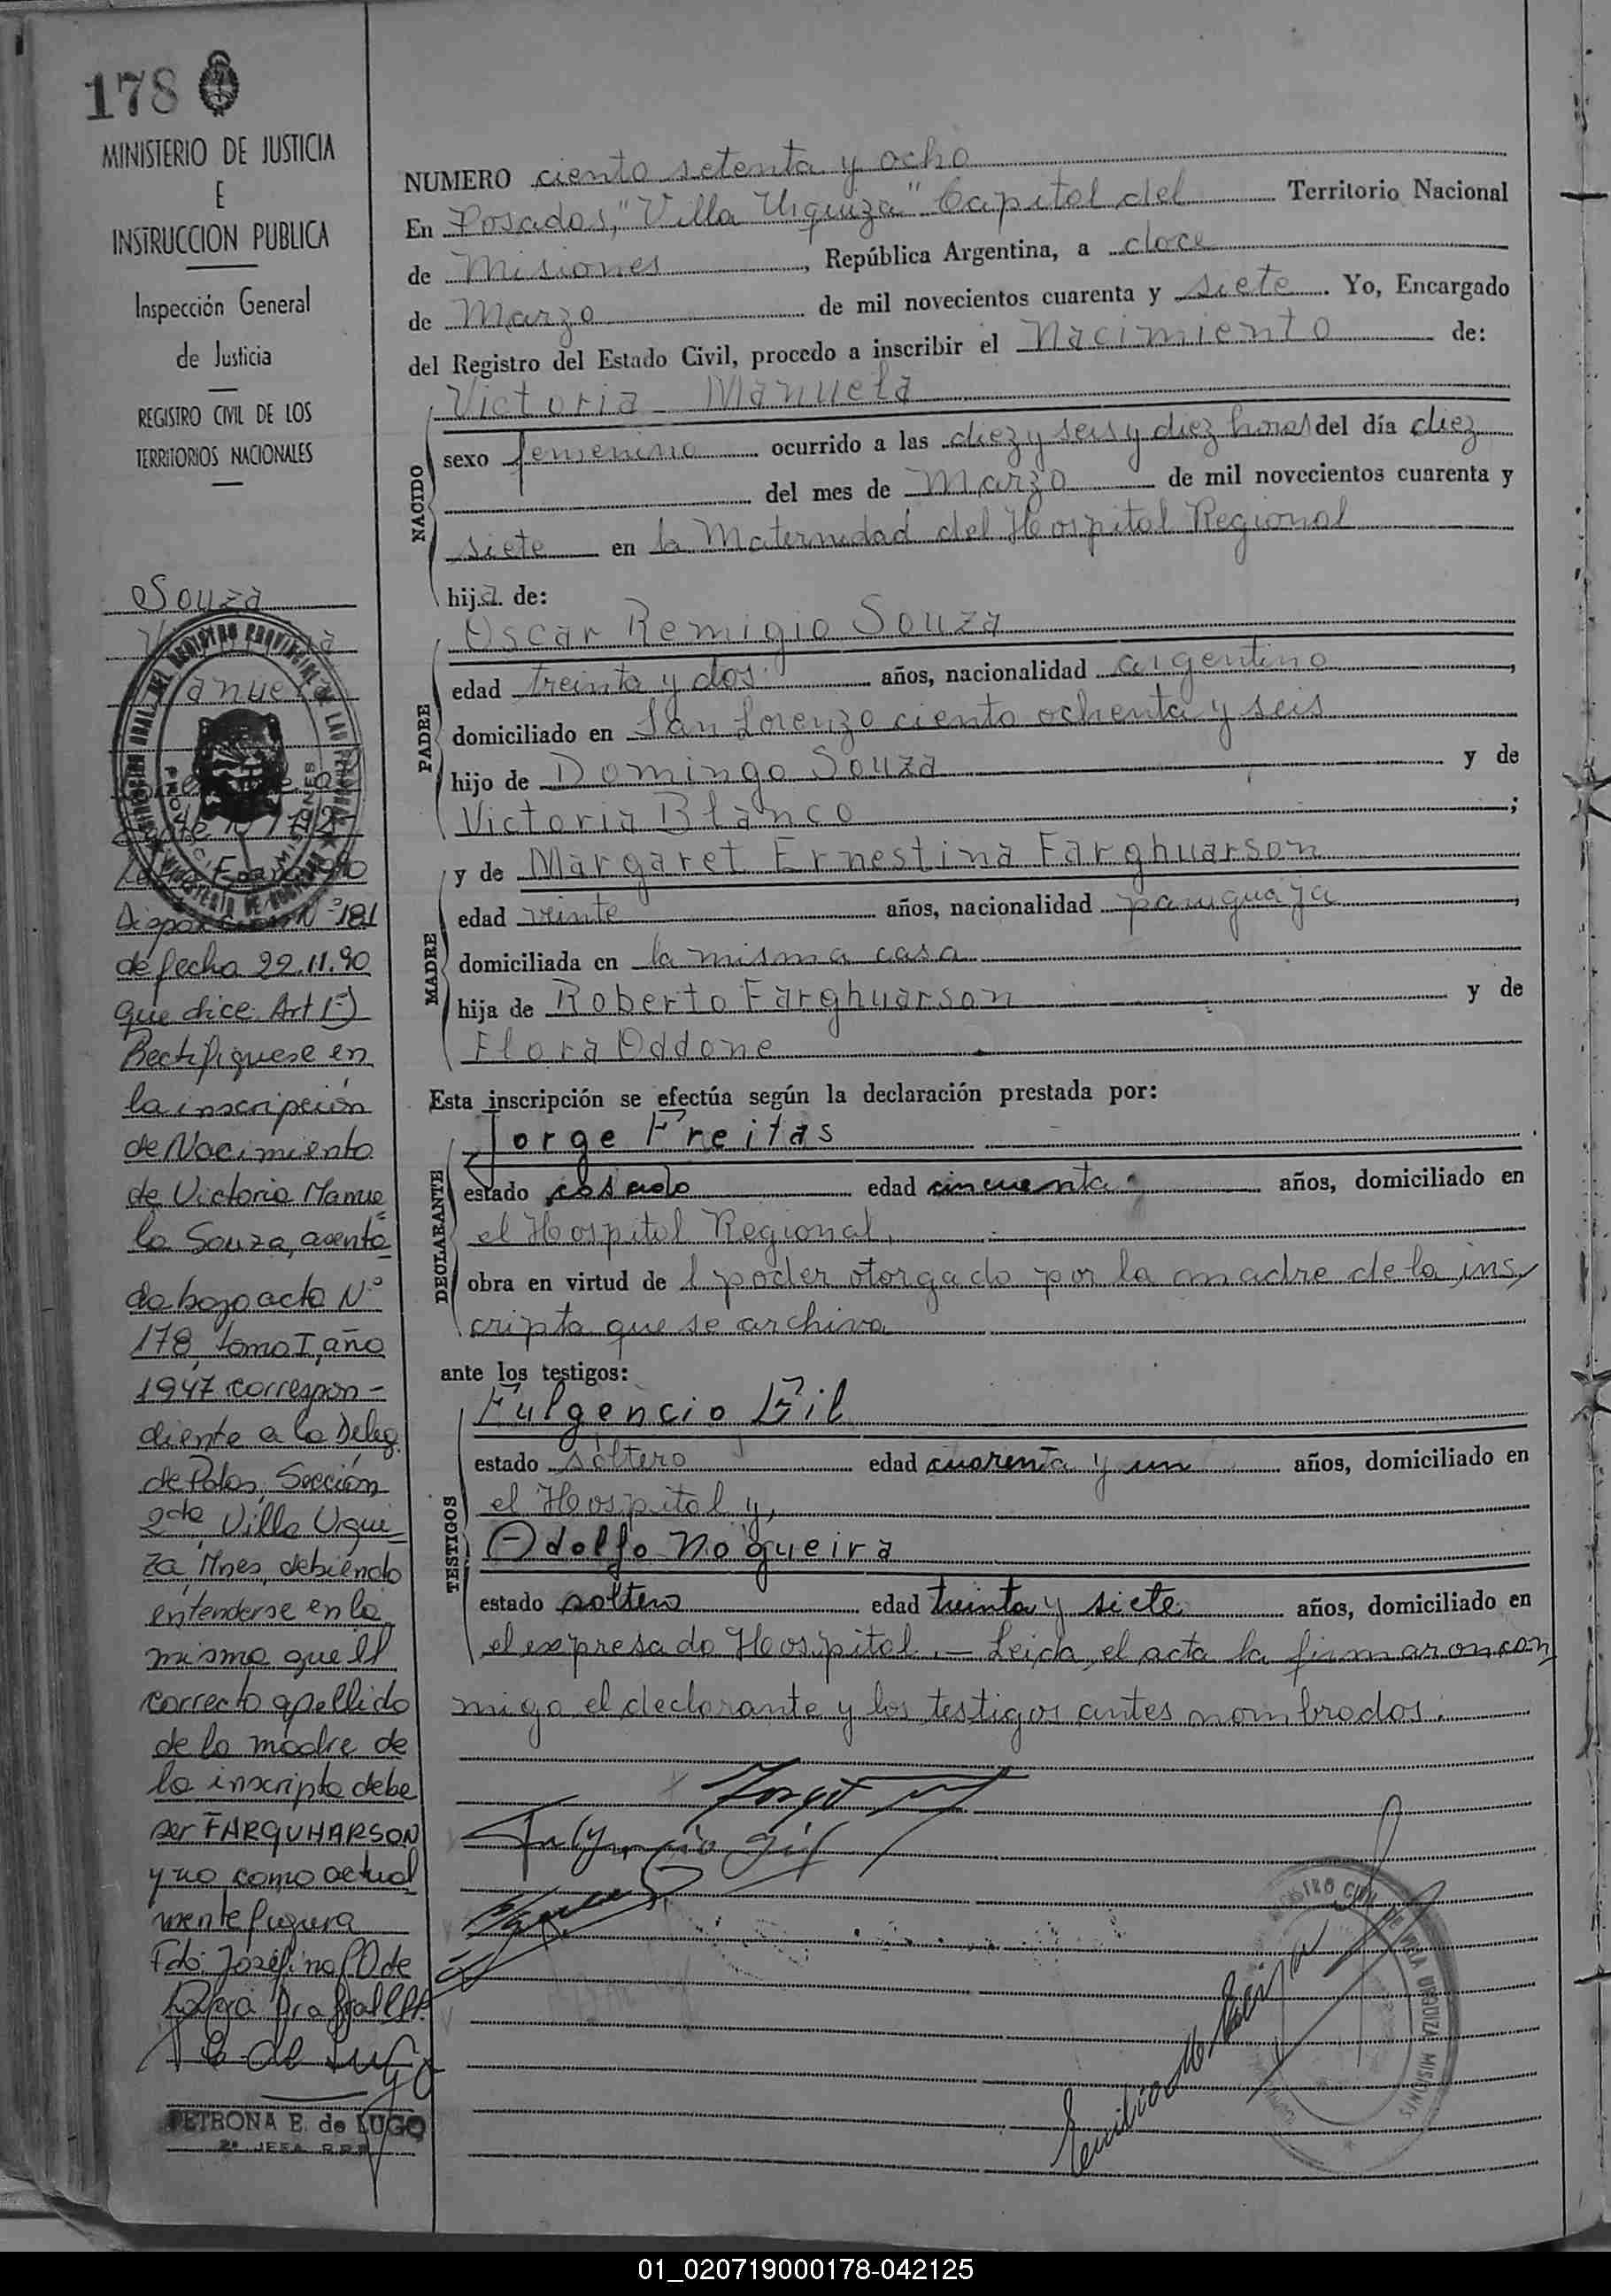 178
MINISTERIO DE JUSTICIA
E
INSTRUCCION PUBLICA
Inspección General
de Justicia
REGISTRO CIVIL DE LOS
TERRITORIOS NACIONALES
Souza
anue
Disposición Nº 181
de fecha 22.11.90
que dice: Art 1º)
Rectifiquese en
la inscripción
de Nacimiento
de Victoria Manue
la Souza, asenta
da bajo acta Nº
178, tomo I, año
1947 correspon-
diente a la Deleg.
de Pdas, Sección
2da Villa Urqui
za, Mnes, debiendo
entenderse en la
misma que el
correcto apellido
de la madre de
la inscripta debe
ser FARQUHARSON
y no como actual
mente figura
Fdo: Josefina O de
PETRONA E. de LUGO
2ª JEFA R.P.P.
NUMERO ciento setenta y ocho
En Posadas, "Villa Urquiza" Capital del Territorio Nacional
de Misiones, República Argentina, a doce
de Marzo de mil novecientos cuarenta y siete. Yo, Encargado
del Registro del Estado Civil, procedo a inscribir el Nacimiento de:
NACIDO
Victoria Manuela
sexo femenino ocurrido a las diez y seis y diez horas del día diez
del mes de Marzo de mil novecientos cuarenta y
siete en la Maternidad del Hospital Regional
hija de:
PADRE
Oscar Remigio Souza
edad treinta y dos años, nacionalidad argentino,
domiciliado en San Lorenzo ciento ochenta y seis
hijo de Domingo Souza y de
Victoria Blanco;
MADRE
y de Margaret Ernestina Farghuarson
edad veinte años, nacionalidad paraguaya,
domiciliada en la misma casa
hija de Roberto Farghuarson y de
Flora Oddone
Esta inscripción se efectúa según la declaración prestada por:
DECLARANTE
Jorge Freitas
estado casado edad cincuenta años, domiciliado en
el Hospital Regional,
obra en virtud de l poder otorgado por la madre de la ins
cripta que se archiva
ante los testigos:
TESTIGOS
Fulgencio Gil
estado soltero edad cuarenta y un años, domiciliado en
el Hospital y,
Adolfo Nogueira
estado soltero edad treinta y siete años, domiciliado en
el expresado Hospital.- Leida el acta la firmaron con
migo el declarante y los testigos antes nombrados.
Fulgencio Gil
REGISTRO CIVIL DE VILLA URQUIZA MISIONES
01_020719000178-042125